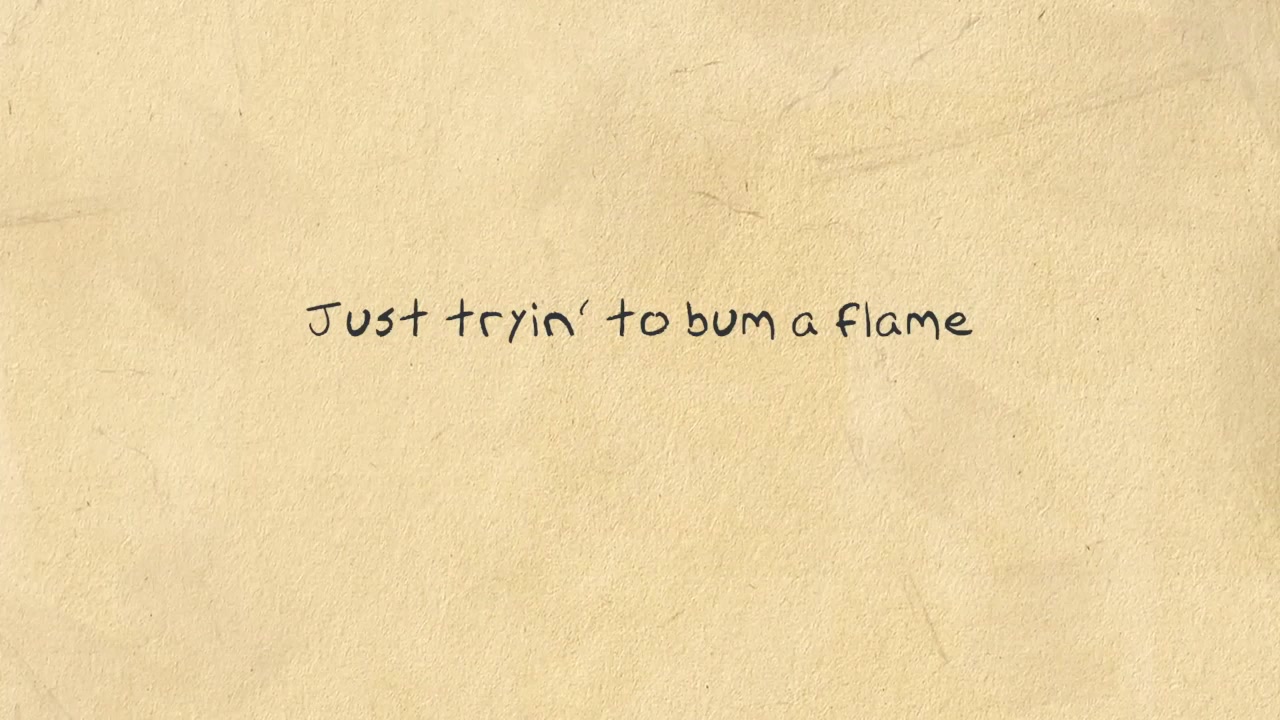 Just tryin' to bum a flame